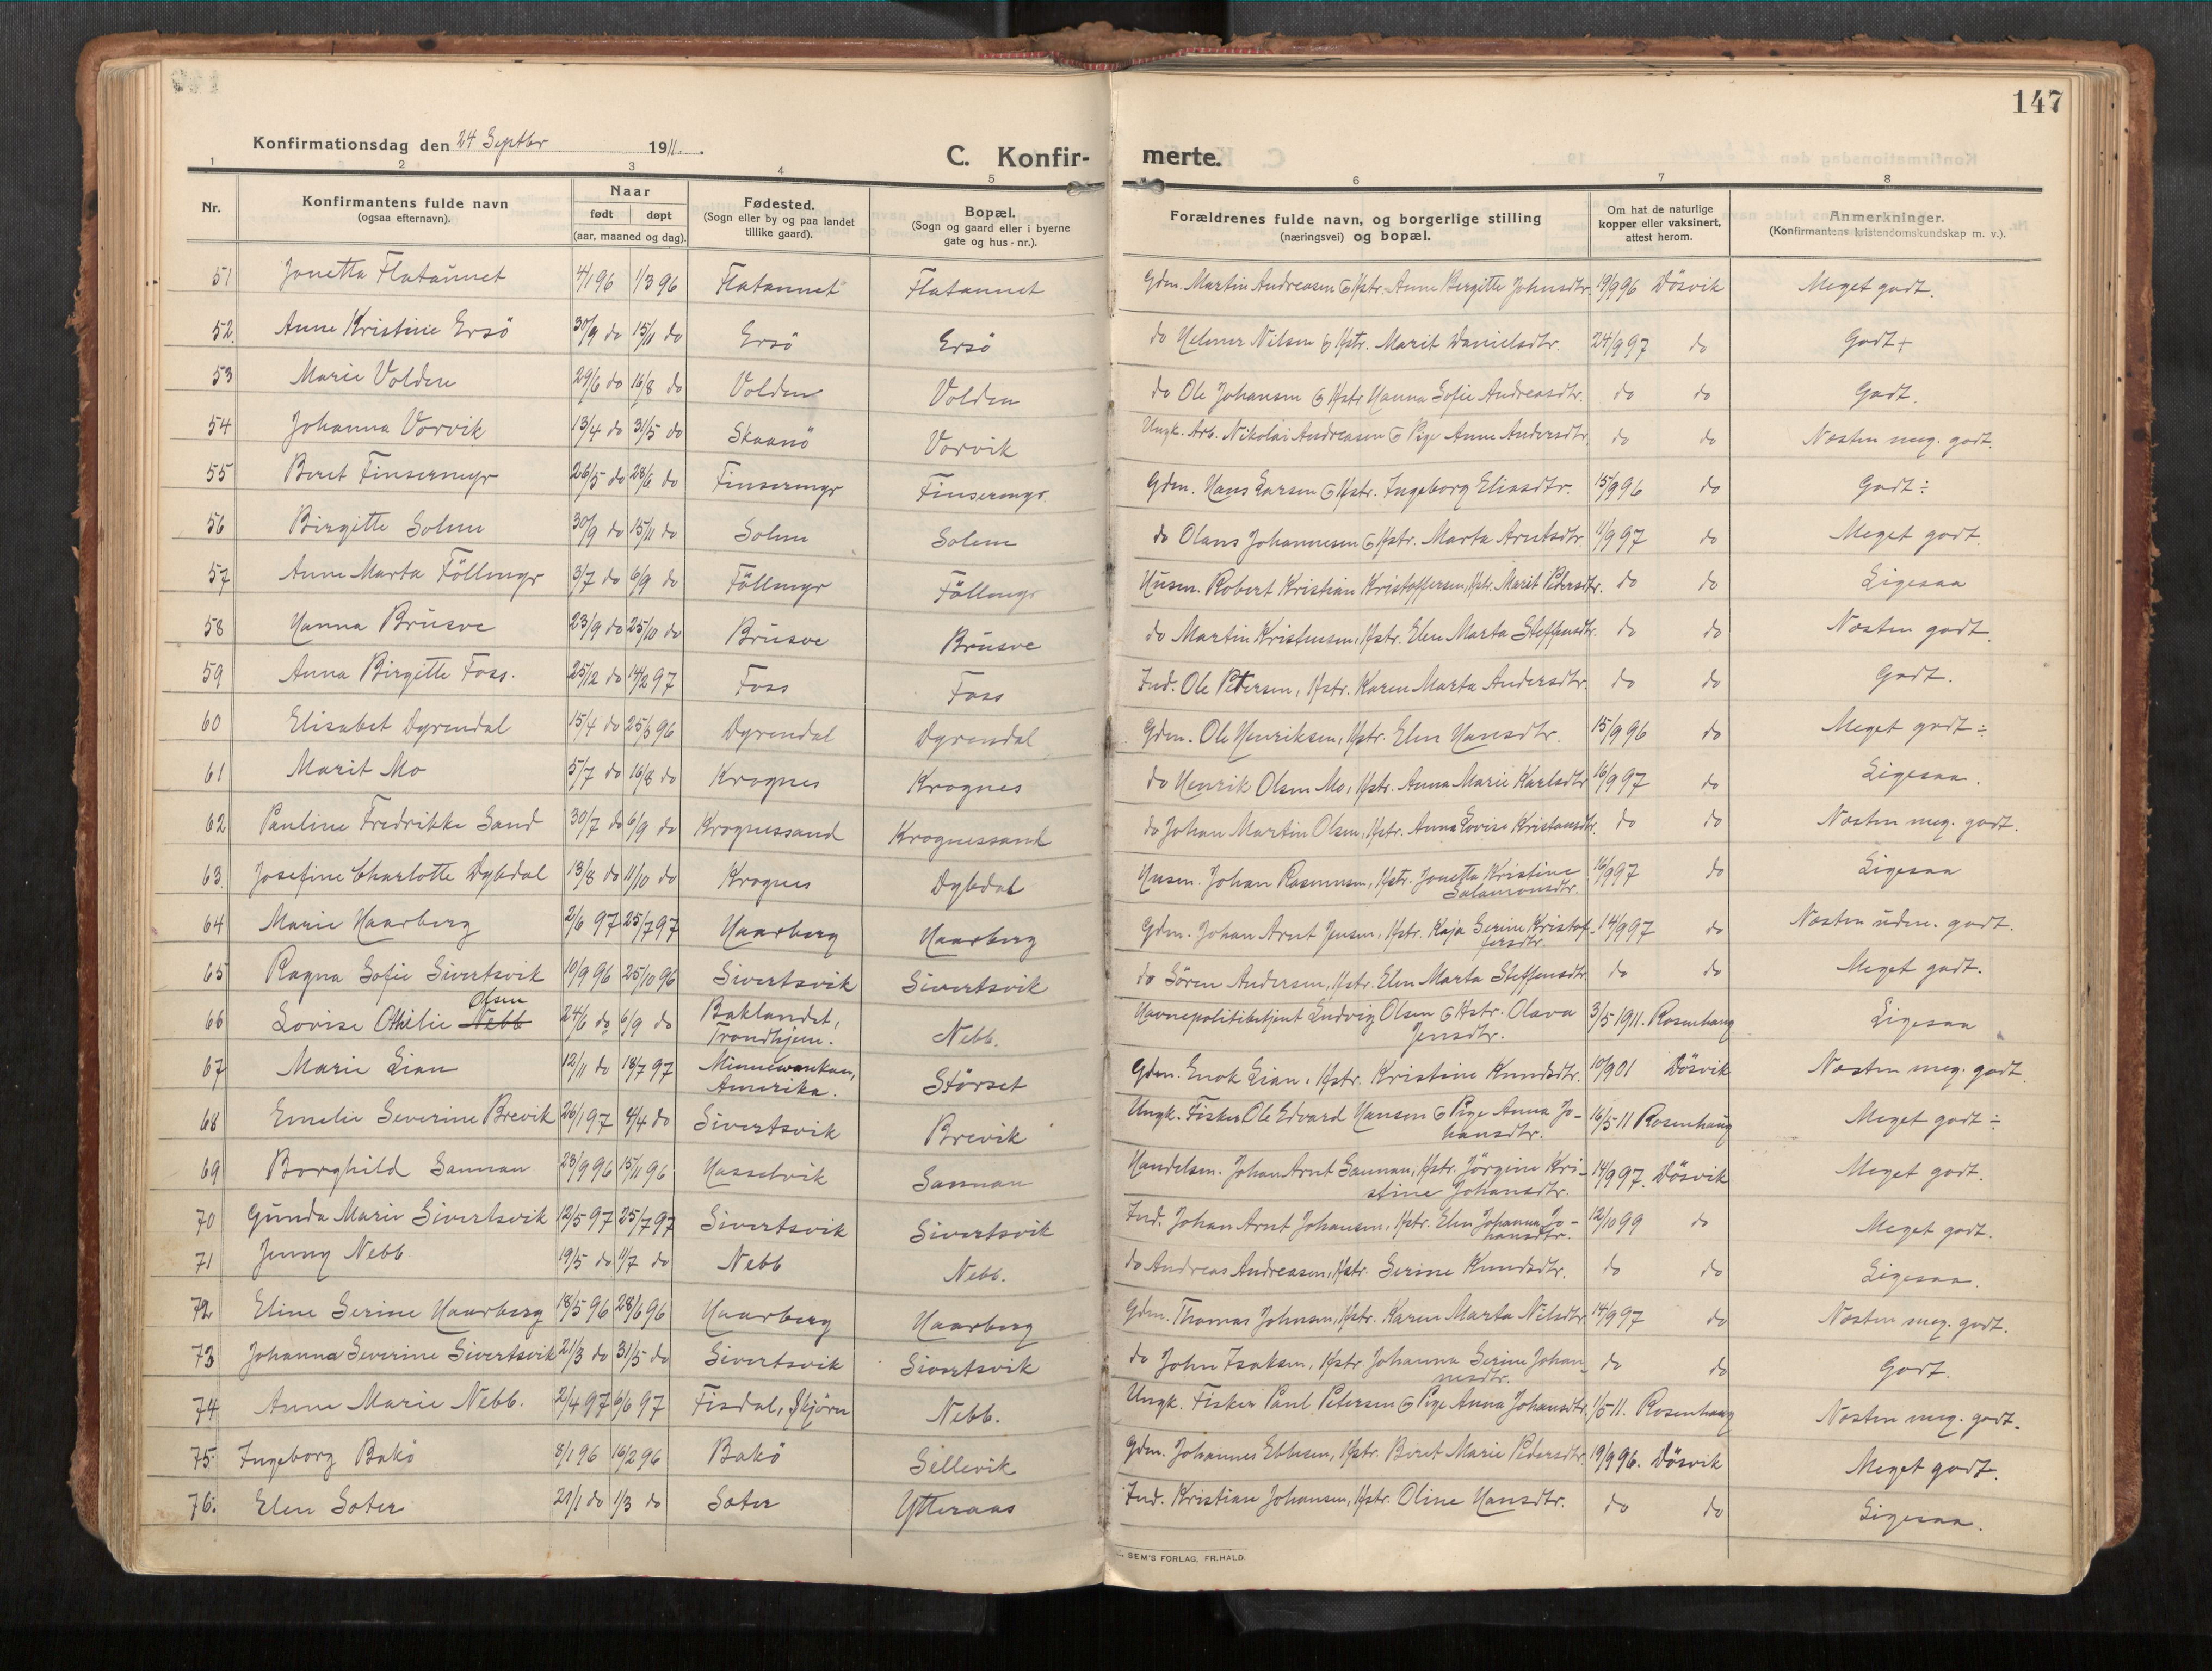 147
Konfirmationsdag den 24 Septbr 1911.
C. Konfir- merte.
1 2 3 4 5 6 7 8
Nr. Konfirmantens fulde navn (ogsaa efternavn). Naar født døpt (aar, maaned og dag). Fødested. (Sogn eller by og paa landet tillike gaard). Bopæl. (Sogn og gaard eller i byerne gate og hus-nr.). Forældrenes fulde navn, og borgerlige stilling (næringsvei) og bopæl. Om hat de naturlige kopper eller vaksinert, attest herom. Anmerkninger. (Konfirmantens kristendomskundskap m. v.).
51 Jonetta Flatannet 4/1 96 1/3 96 Flatannet Flatannet Gdm. Martin Andreasen & Hstr. Anne Birgitte Johnsdtr. 19/9 96 Dösvik Meget godt.
52. Anne Kristine Ersö 30/9 do 15/11 do Ersö Ersö do Helmer Nilsen & Hstr. Marit Danielsdtr. 24/9 97 do Godt +
53 Marie Volden 29/6 do 16/8 do Volden Volden do Ole Johansen & Hstr. Hanna Sofie Andreasdtr. do do Godt.
54 Johanna Vorvik 13/4 do 31/5 do Skaanö Vorvik Ungk. Arb. Nikolai Andreasen & Pige Anne Andersdtr. do do Næsten meg. godt.
55 Beret Finsermyr 26/5 do 28/6 do Finsermyr Finsermyr. Gdm. Hans Larsen & Hstr. Ingeborg Eliasdtr. 15/9 96 do Godt ÷
56 Birgitte Solem 30/9 do 15/11 do Solem Solem do Olaus Johannesen & Hstr. Marta Arntsdtr. 11/9 97 do Meget godt.
57 Anne Marta Föllmyr 3/7 do 6/9 do Föllmyr Föllmyr Husm. Robert Kristian Kristoffersen, Hstr. Marit Pedersdtr. do do Ligesaa
58 Hanna Brusve 23/9 do 25/10 do Brusve Brusve do Martin Kristensen, Hstr. Elen Marta Steffensdtr. do do Næsten godt.
59 Anna Birgitte Foss. 25/12 do 14/2 97 Foss Foss Ind. Ole Petersen, Hstr. Karen Marta Andersdtr. do do Godt.
60 Elisabet Dyrendal 15/4 do 25/5 96 Dyrendal Dyrendal Gdm. Ole Henriksen, Hstr. Elen Hansdtr. 15/9 96 do Meget godt ÷
61 Marit Mo 5/7 do 16/8 do Krognes Krognes do Henrik Olsen Mo, Hstr. Anna Marie Karlsdtr 16/9 97 do Ligesaa.
62 Pauline Fredrikke Sand 30/7 do 6/9 do Krognessand Krognessand do Johan Martin Olsen, Hstr. Anna Lovise Kristensdtr. do do Næsten meg. godt.
63. Josefine Charlotte Dybdal 13/8 do 11/10 do Krognes Dybdal Husm. Johan Rasmussen, Hstr. Jonetta Kristine Salamonsdtr. 16/9 97 do Ligesaa
64 Marie Haarberg 2/6 97 25/7 97 Haarberg Haarberg Gdm. Johan Arnt Jensen, Hstr. Kaja Serine Kristoffersdtr. 14/9 97 do Næsten udm. godt.
65 Ragna Sofie Sivertsvik 10/9 96 25/10 96 Sivertsvik Sivertsvik do Sören Andersen, Hstr. Elen Marta Steffensdtr. do do Meget godt.
66 Lovise Othilie Nebb Olsen 24/6 do 6/9 do Baklandet, Trondhjem. Nebb. Havnepolitibetjent Ludvig Olsen & Hstr. Olava Jensdtr. 3/5 1911. Rosenhaug Ligesaa
67 Marie Lian 12/11 do 18/7 97 Minnewaukan, Amerika. Störset Gdm. Enok Lian, Hstr. Kristine Knudsdtr. 10/9 01 Dösvik Næsten meg. godt.
68 Emelie Severine Brevik 26/1 97 4/4 do Sivertsvik Brevik Ungk. Fisker Ole Edvard Hansen & Pige Anna Johansdtr. 16/5-11 Rosenhaug Meget godt ÷
69 Borghild Sannan 23/9 96 15/11 96 Hasselvik Sannan Handelsm. Johan Arnt Sannan, Hstr. Jörgine Kristine Johansdtr. 14/9 97. Dösvik Meget godt.
70 Gunda Marie Sivertsvik 12/5 97 25/7 97 Sivertsvik Sivertsvik Ind. Johan Arnt Johansen, Hstr. Elen Johanna Johansdtr. 12/10 99 do Meget godt.
71 Jenny Nebb. 19/5 do 11/7 do Nebb Nebb. do Andreas Andreasen, Hstr. Serine Knudsdtr. do do Ligesaa.
72 Eline Serine Haarberg 18/5 96 28/6 96 Haarberg Haarberg Gdm. Thomas Johnsen, Hstr. Karen Marta Nilsdtr 14/9 97 do Næsten meg. godt.
73 Johanna Severine Sivertsvik 21/3 do 31/5 do Sivertsvik Sivertsvik do John Isaksen, Hstr. Johanna Serine Johannesdtr. do do Godt.
74 Anne Marie Nebb. 2/4 97 6/6 97 Fisdal, Skjörn Nebb. Ungk. Fisker Paul Petersen & Pige Anna Johansdtr. 1/5 11. Rosenhaug Næsten meg. godt.
75 Ingeborg Bakö 8/1 96 16/2 96 Bakö Sellevik Gdm. Johannes Ebbesen, Hstr. Beret Marie Pedersdtr. 19/9 96. Dösvik Meget godt.
76. Elen Sæter 21/1 do 1/3 do Sæter Ytteraas Ind. Kristian Johansen, Hstr. Oline Hansdtr. do do Ligesaa.
SEM'S FORLAG, FR.HALD.